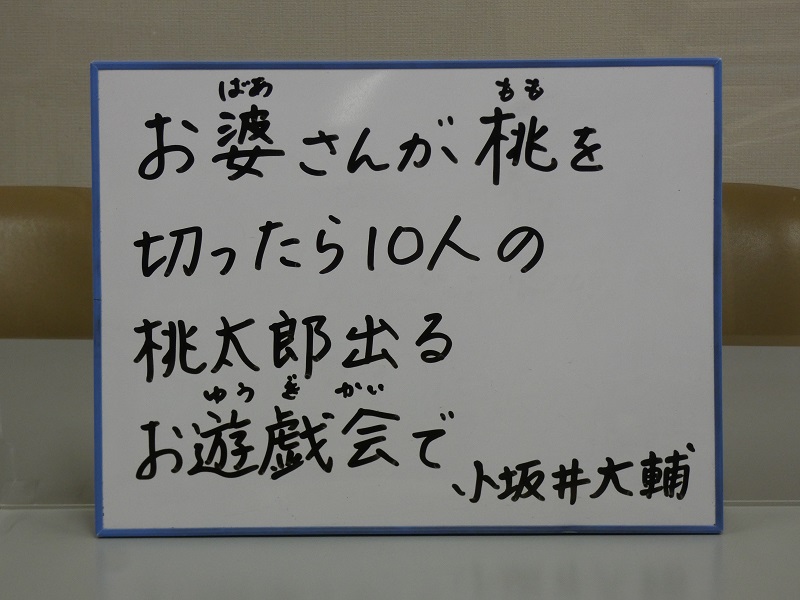 ばあ もも
お婆さんが桃を
切ったら10人の
桃太郎出る
ゆう ぎ かい
お遊戯会で
小坂井大輔